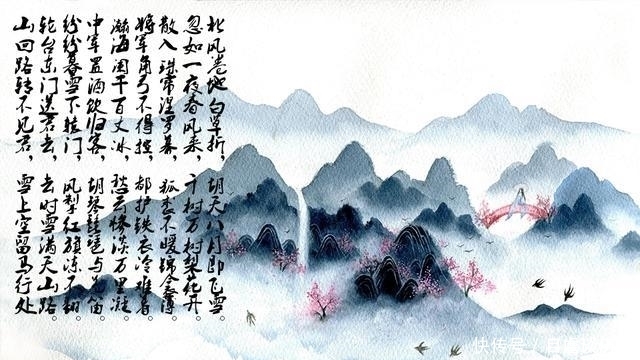 北风卷地白草折，胡天八月即飞雪。
忽如一夜春风来，千树万树梨花开。
散入珠帘湿罗幕，狐裘不暖锦衾薄。
将军角弓不得控，都护铁衣冷难着。
瀚海阑干百丈冰，愁云惨淡万里凝。
中军置酒饮归客，胡琴琵琶与羌笛。
纷纷暮雪下辕门，风掣红旗冻不翻。
轮台东门送君去，去时雪满天山路。
山回路转不见君，雪上空留马行处。
快传号